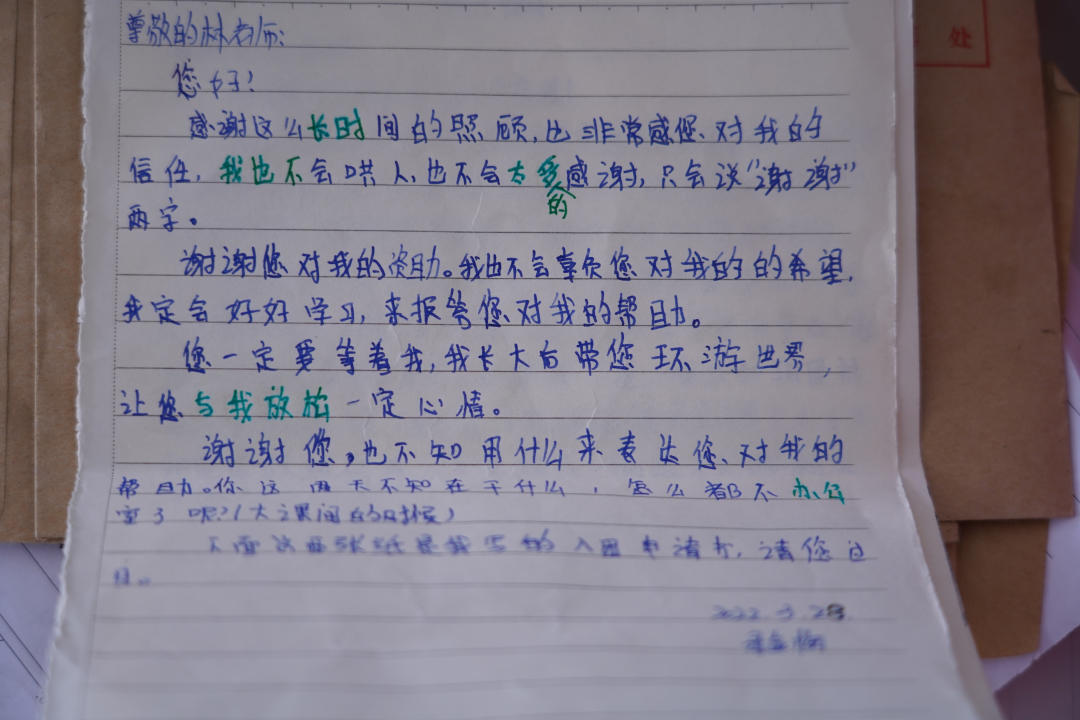 尊敬的林老师:
您好!
感谢这么长时间的照顾,也非常感您对我的
信任,我也不会哄人,也不会太多的感谢,只会说"谢谢"
两字。
谢谢您对我的资助。我也不会辜负您对我的的希望,
我定会好好学习,来报答您对我的帮助。
您一定要等着我,我长大后带您环游世界,
让您与我放松一定心情。
谢谢您,也不知用什么来表达您对我的
帮助。你这两天不知在干什么,怎么都不办公
室了呢?(大课间的时候)
下面这两张纸是我写的入团申请书,请您过
目。
2022.3.28
处